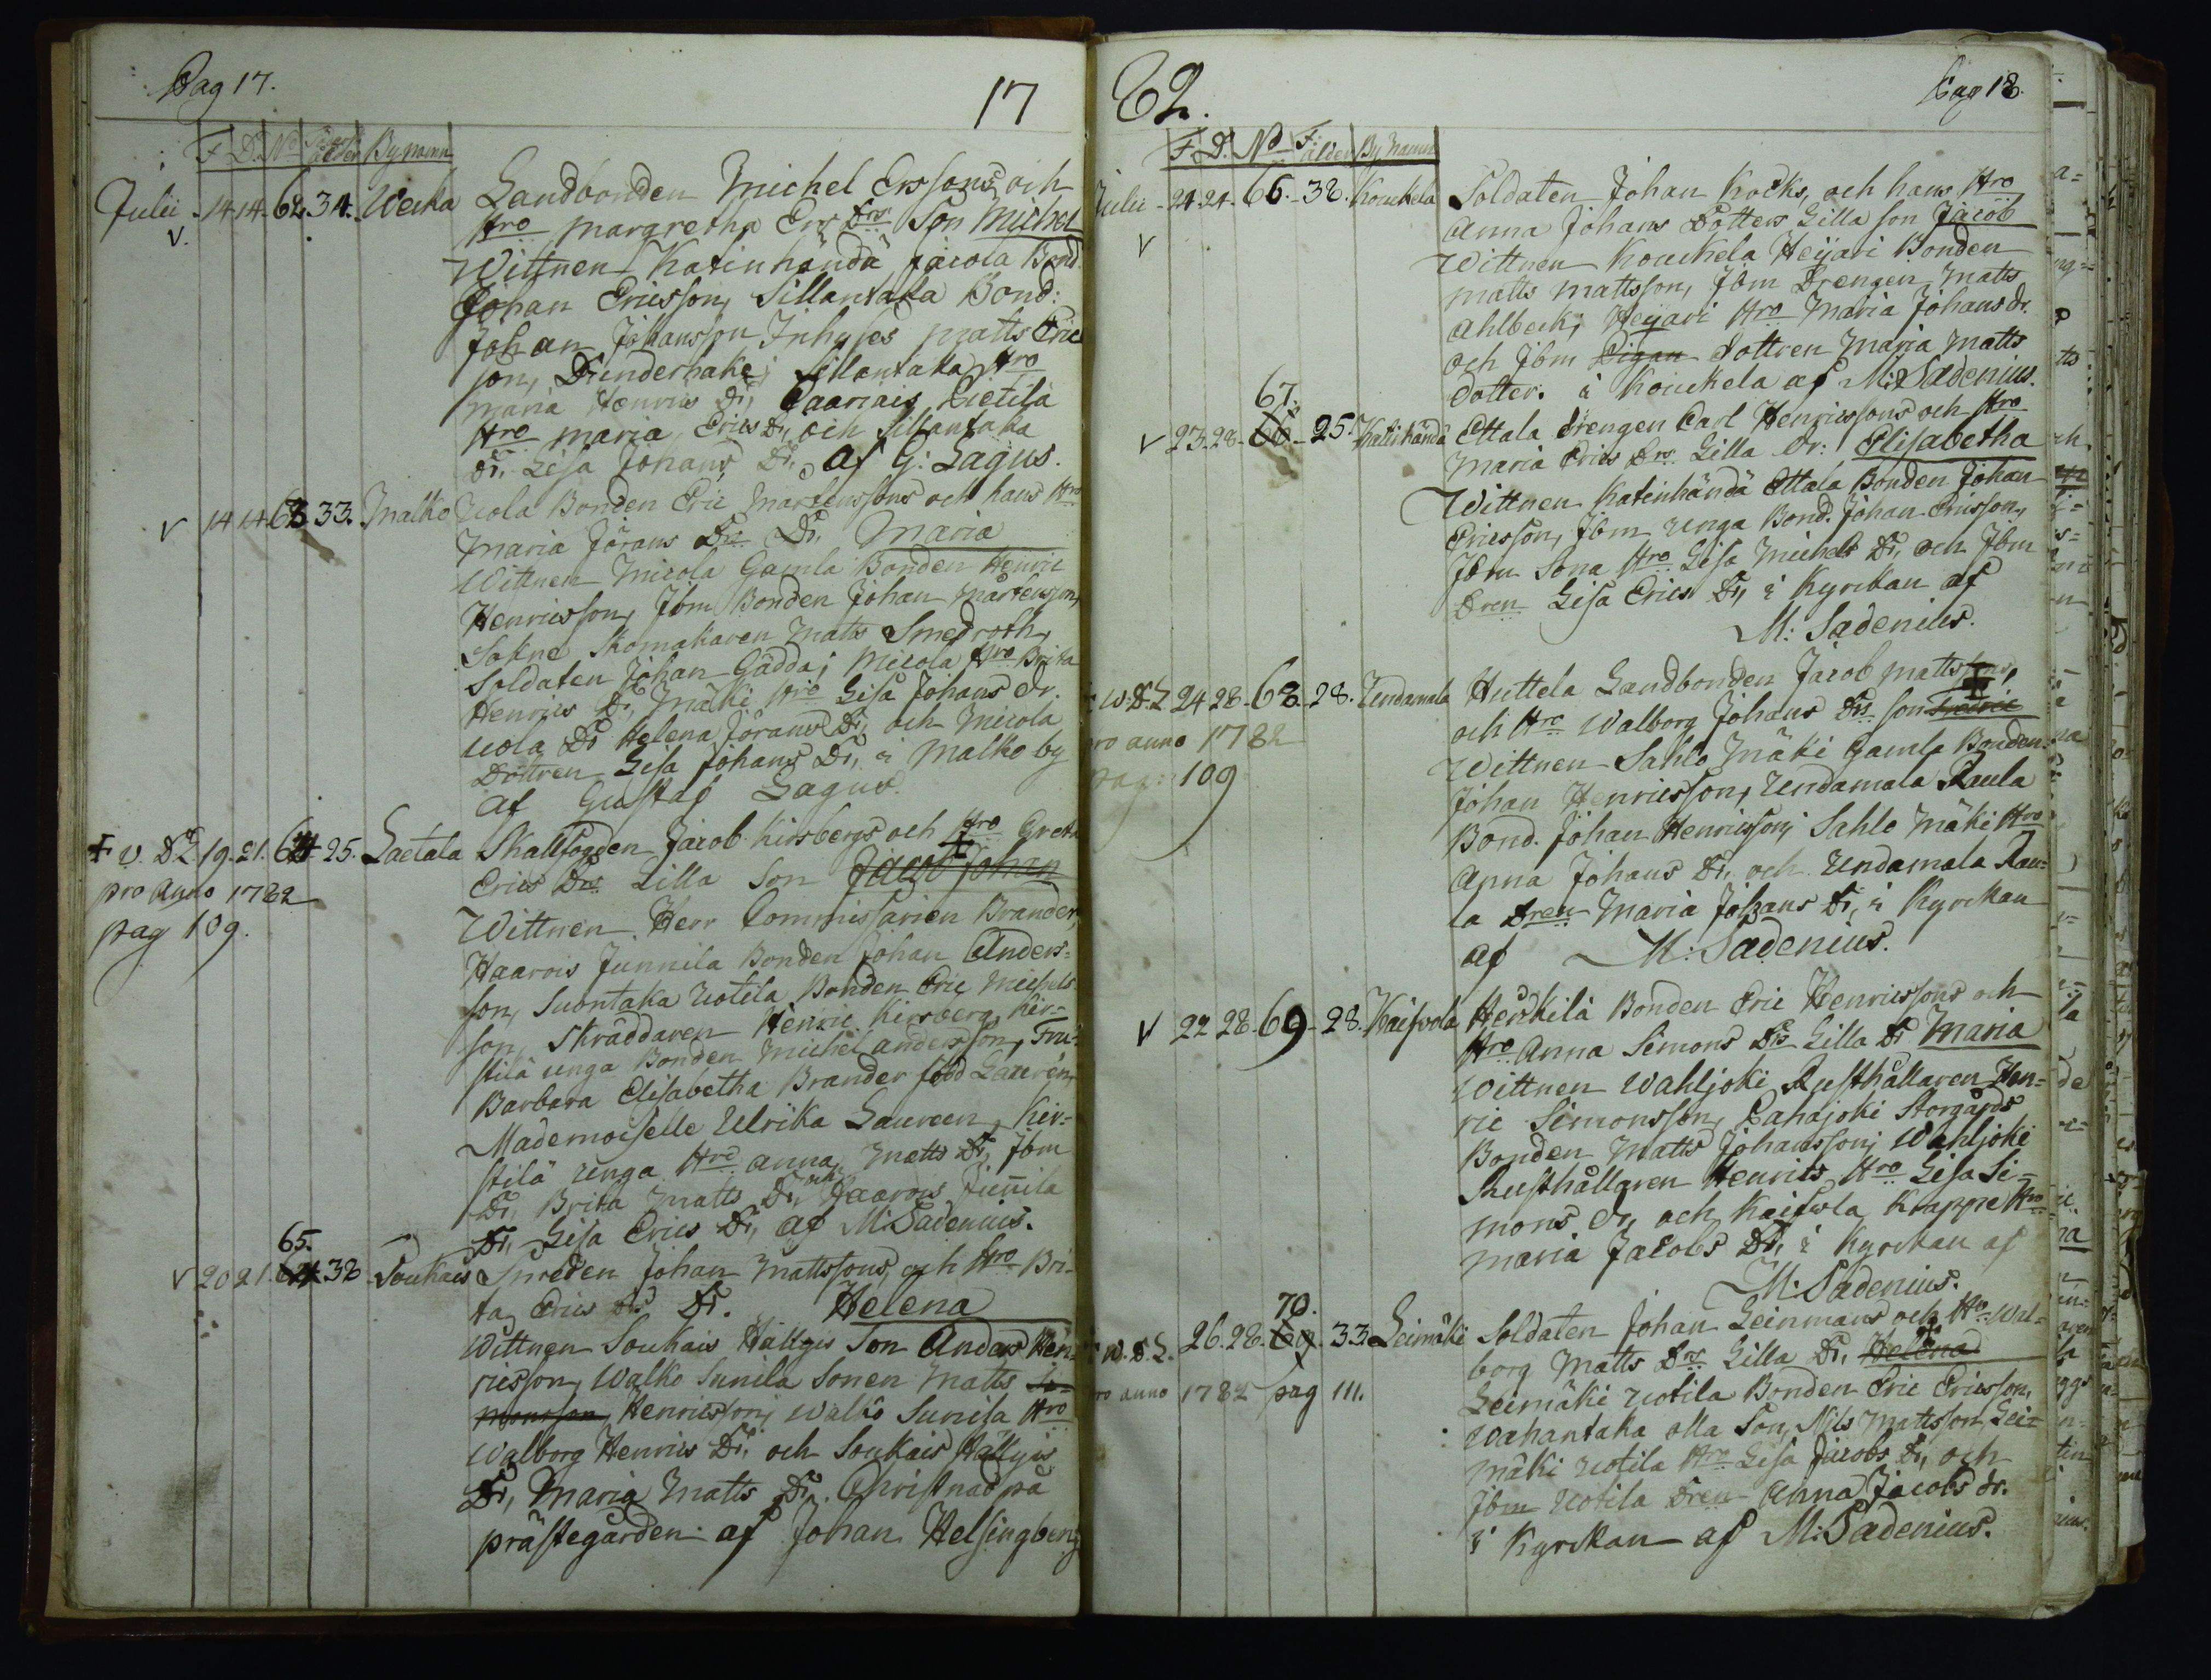 Pag 17.
17
F. D. No Föräld: ålder By namn
Julii 14 14. 62. 34. Weska Landbonden Michel Erssons och
V. Hro margretha Ers Drs Son Michel
Wittnen Katinhändä Jacola Bond.
Johan Ericsson, Sillantaka Bond:
Johan Johansson Inhyses Matts Eric
son, Dunderhake; Sillantaka Hro
maria Henrics Dr, Paariais Pietilä
Hro maria Erics Dr, och Sillantaka
Dr. Lisa Johans Dr, af G: Lagus.
V 14 14 63 33. Malko Uola Bonden Eric Martenssons och hans Hro
Maria Jörans Drs Dr. Maria
Wittnen Micola Gamla Bonden Henric
Henricsson, Jbm Bonden Johan Mårtensson,
Sokne Skomakaren Matts Smedroth,
Soldaten Johan Gädda; Micola Hro Brita
Henrics Dr, Mäki Hro Lisa Johans dr.
Uola Dr Helena Jörans Dr, och Micola
Döttren Lisa Johans Dr, i Malko by
af Gustaf Lagus.
+ v. DL 19. 21. 64 25. Laetala Skallfogden Jacob Kirsbergs och Hro Greta
pro Anno 1782 Erics Drs Lilla Son Jacob Johan
pag 109. Wittnen Herr Commissarien Brander,
Haarois Junnila Bonden Johan Anders=
son, Suontaka Uotila Bonden Eric Michels
son, Skräddaren Henric Kirsberg, Kir=
stilä unga Bonden Michel andersson, Fru
Barbara Elisabetha Brander född Laurén,
Mademoiselle Ulrika Laureen, Kir=
stilä unga Hro anna Matts Dr, Jbm
Dr, Brita Matts Dr, och Haarois Junnila
Dr, Lisa Erics Dr, af M: Sadenius.
65.
V 20 21. 64 38 Soukais Snreden Johan Mattssons, och Hro Bri-
ta Erics Drs Dr. Helena
Wittnen Soukais Hällgis Son Anders Hen=
ricsson, Walko Sunila Sonen Matts Si=
monsson, Henricsson; Walko Sunila Hro
Walborg Henrics Dr, och Soukais Hällgis
Dr, Maria Matts Dr. Christnad på
prästegården af Johan Helsingberg
62.
Pag 18.
F. D. No F: ålder By Namn
Julii 24 24. 66. 38. Koukela Soldaten Johan Kocks, och hans Hro
V Anna Johans Dotters Lilla son Jacob
Wittnen Koukela Heijari Bonden
matts mattsson, Jbm Drengen Matts
Ahlbeck; Heijari Hro Maria Johans dr.
och Jbm Pigan dottren Maria Matts
dotter. i Koukela af M: Sadenius.
67.
V 23. 28. 66 25. Katinhändä Ettala drengen Carl Henricssons och Hro
Maria Erics Drs Lilla Dr: Elisabetha
Wittnen Katinhändä Ettala Bonden Johan
Ericsson, Jbm unga Bond. Johan Ericsson,
Jbm Sona Hro Lisa Michels Dr, och Jbm
Dren Lisa Erics Dr, i Kyrckan af
M: Sadenius.
w. D. L 24 28. 68. 28. Undamala Huttela Landbonden Jacob Mattssons,
pro anno 1782 och Hro Walborg Johans Drs son
pag: 109 Wittnen Sahlo Mäki Gamla Bonden
Johan Henricsson, Undamala Paula
Bond. Johan Henricsson; Sahlo Mäki Hro
Anna Johans Dr, och Undamala Pau=
la Dren Maria Johans Dr, i Kyrckan
af M: Sadenius.
V 22 28. 69. 28. Kaifwola Herckilä Bonden Eric Henricssons och
Hro Anna Simons Drs Lilla Dr Maria
Wittnen Wahljoki Rusthållaren Hen=
ric Simonsson, Pahajoki Storgårds
Bonden Matts Johansson; Wahljoki
Rusthållaren Henrics Hro Lisa Si=
mons dr, och Kaifwola Krappe Hro
maria Jacobs Dr, i Kyrckan af
M: Sadenius.
70.
w. D. L. 26. 28. 69. 33. Leimäki Soldaten Johan Leinmans och Hro Wal=
pro anno 1782 pag 111. borg Matts Drs Lilla Dr, Helena
Leimäki Uotila Bonden Eric Ericsson,
Wahantaka olla Son, Nils Mattsson, Lei=
mäki Uotila Hro Lisa Jacobs Dr, och
Jbm Uotila Dren Anna Jacobs dr.
i Kyrckan af M: Sadenius.